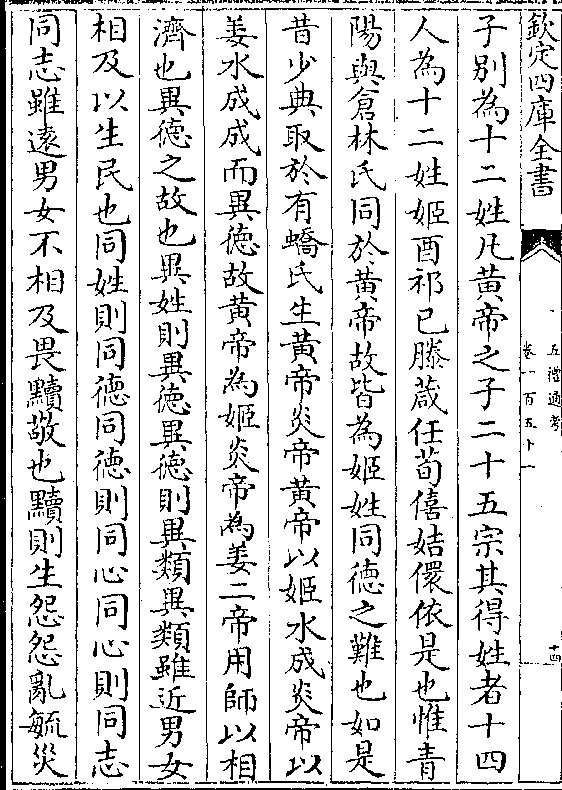 欽定四庫全書
五禮通考
卷一百五十一
十四
子别為十二姓凡黄帝之子二十五宗其得姓者十四
人為十二姓姬酉祁已滕葴任荀僖姞儇依是也惟青
陽與倉林氏同於黄帝故皆為姬姓同徳之難也如是
昔少典取於有蟜氏生黄帝炎帝黄帝以姬水成炎帝以
姜水成成而異徳故黄帝為姬炎帝為姜二帝用師以相
濟也異徳之故也異姓則異徳異徳則異類異類雖近男女
相及以生民也同姓則同徳同徳則同心同心則同志
同志雖遠男女不相及畏黷敬也黷則生怨怨亂毓災